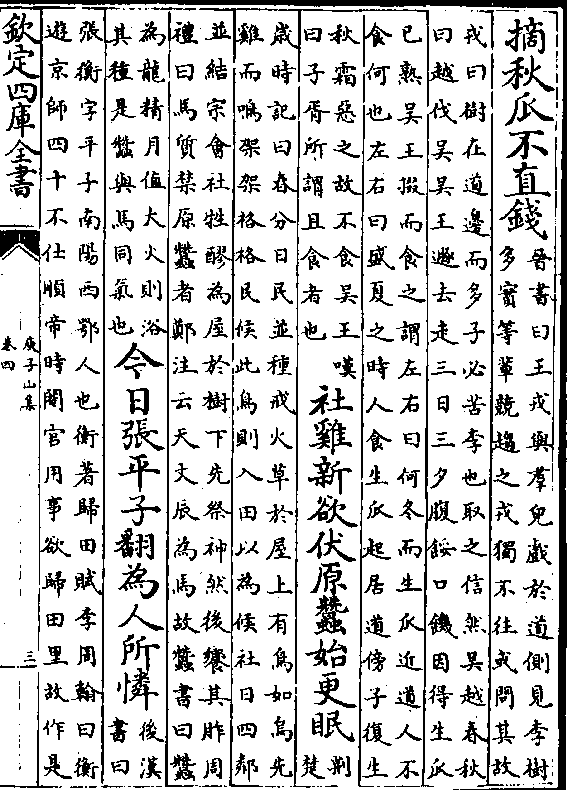 摘秋瓜不直錢
晉書曰王戎與羣兒戲於道側見李樹
多實等輩競趨之戎獨不往或問其故
戎曰樹在道邊而多子必苦李也取之信然吳越春秋
曰越伐吳吳王遯去走三日三夕腹餒口饑因得生瓜
已熟吳王掇而食之謂左右曰何冬而生瓜近道人不
食何也左右曰盛夏之時人食生瓜起居道傍子復生
秋霜惡之故不食吳王嘆
曰子胥所謂且食者也
社雞新欲伏原蠶始更眠
荆
楚
歲時記曰春分日民並種戒火草於屋上有鳥如烏先
雞而鳴架架格格民候此鳥則入田以為候社日四鄰
並結宗會社牲醪為屋於樹下先祭神然後饗其胙周
禮曰馬質禁原蠶者鄭注云天文辰為馬故蠶書曰蠶
為龍精月值大火則浴
其種是蠶與馬同氣也
今日張平子翻為人所憐
後漢
書曰
張衡字平子南陽西鄂人也衡著歸田賦李周翰曰衡
遊京師四十不仕順帝時閹官用事欲歸田里故作是
欽定四庫全書
庾子山集
卷四
三